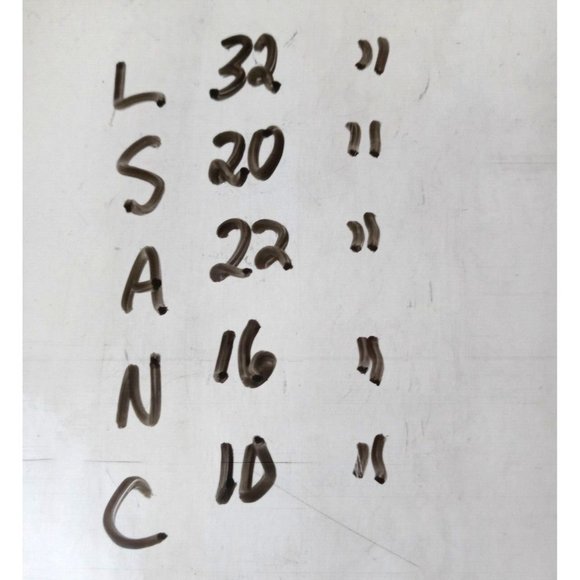 L 32 "
S 20 "
A 22 "
N 16 "
C 10 "